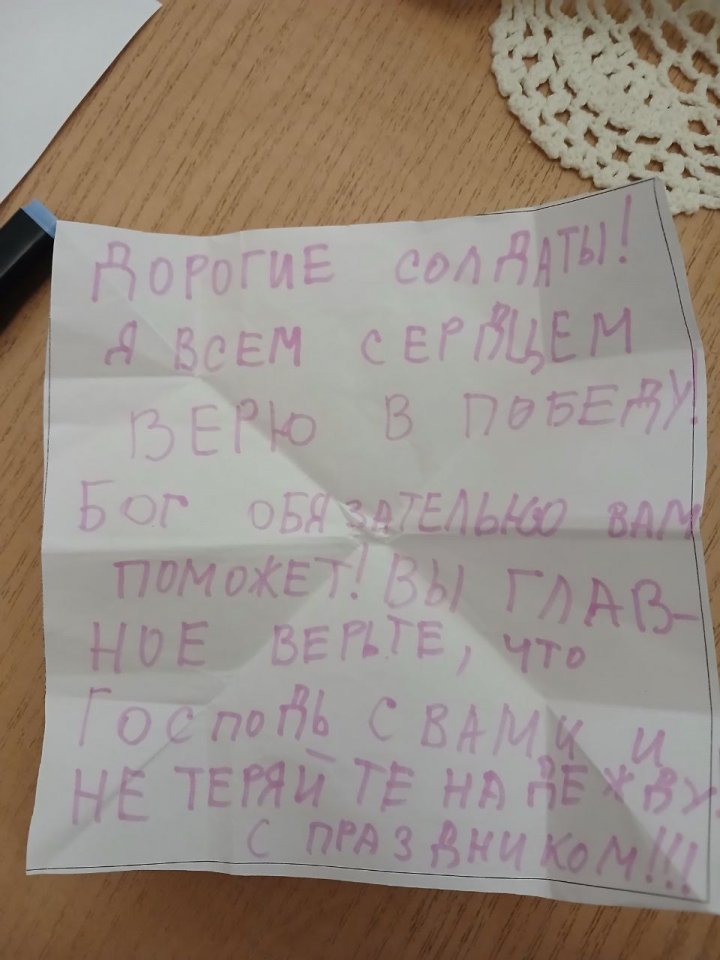 ДОРОГИЕ СОЛДАТЫ!
Я ВСЕМ СЕРДЦЕМ
ВЕРЮ В ПОБЕДУ!
БОГ ОБЯЗАТЕЛЬНО ВАМ
ПОМОЖЕТ! ВЫ ГЛАВ-
НОЕ ВЕРЬТЕ, ЧТО
ГОСПОДЬ С ВАМИ И
НЕ ТЕРЯЙТЕ НАДЕЖДУ.
С ПРАЗДНИКОМ!!!